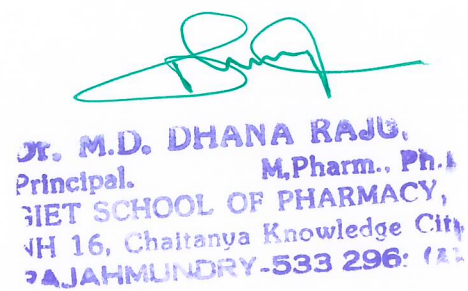 Dr. M.D. DHANA RAJU,
Principal. M,Pharm., Ph.
GIET SCHOOL OF PHARMACY,
NH 16, Chaitanya Knowledge City
RAJAHMUNDRY-533 296: (A